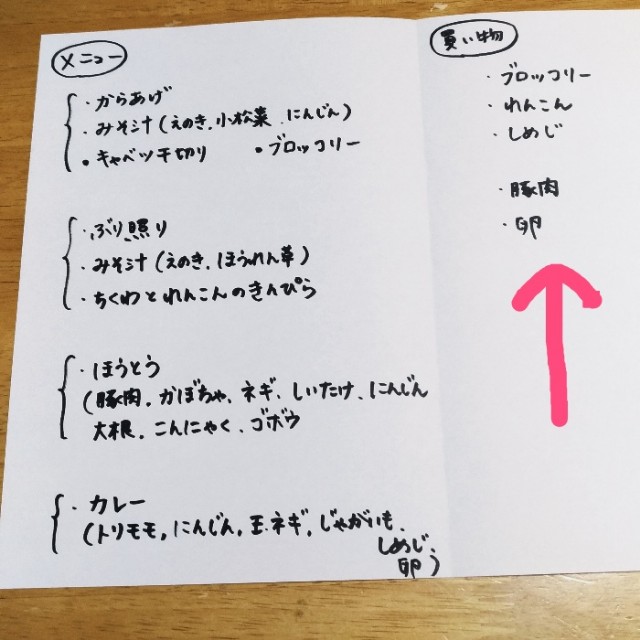 メニュー
・からあげ
・みそ汁(えのき,小松菜、にんじん)
・キャベツ千切り ・ブロッコリー
・ぶり照り
・みそ汁(えのき,ほうれん草)
・ちくわとれんこんのきんぴら
・ほうとう
(豚肉,かぼちゃ、ネギ、しいたけ、にんじん
大根,こんにゃく、ゴボウ
・カレー
(トリモモ,にんじん,玉ネギ,じゃがいも、
しめじ、
卵)
買い物
・ブロッコリー
・れんこん
・しめじ
・豚肉
・卵